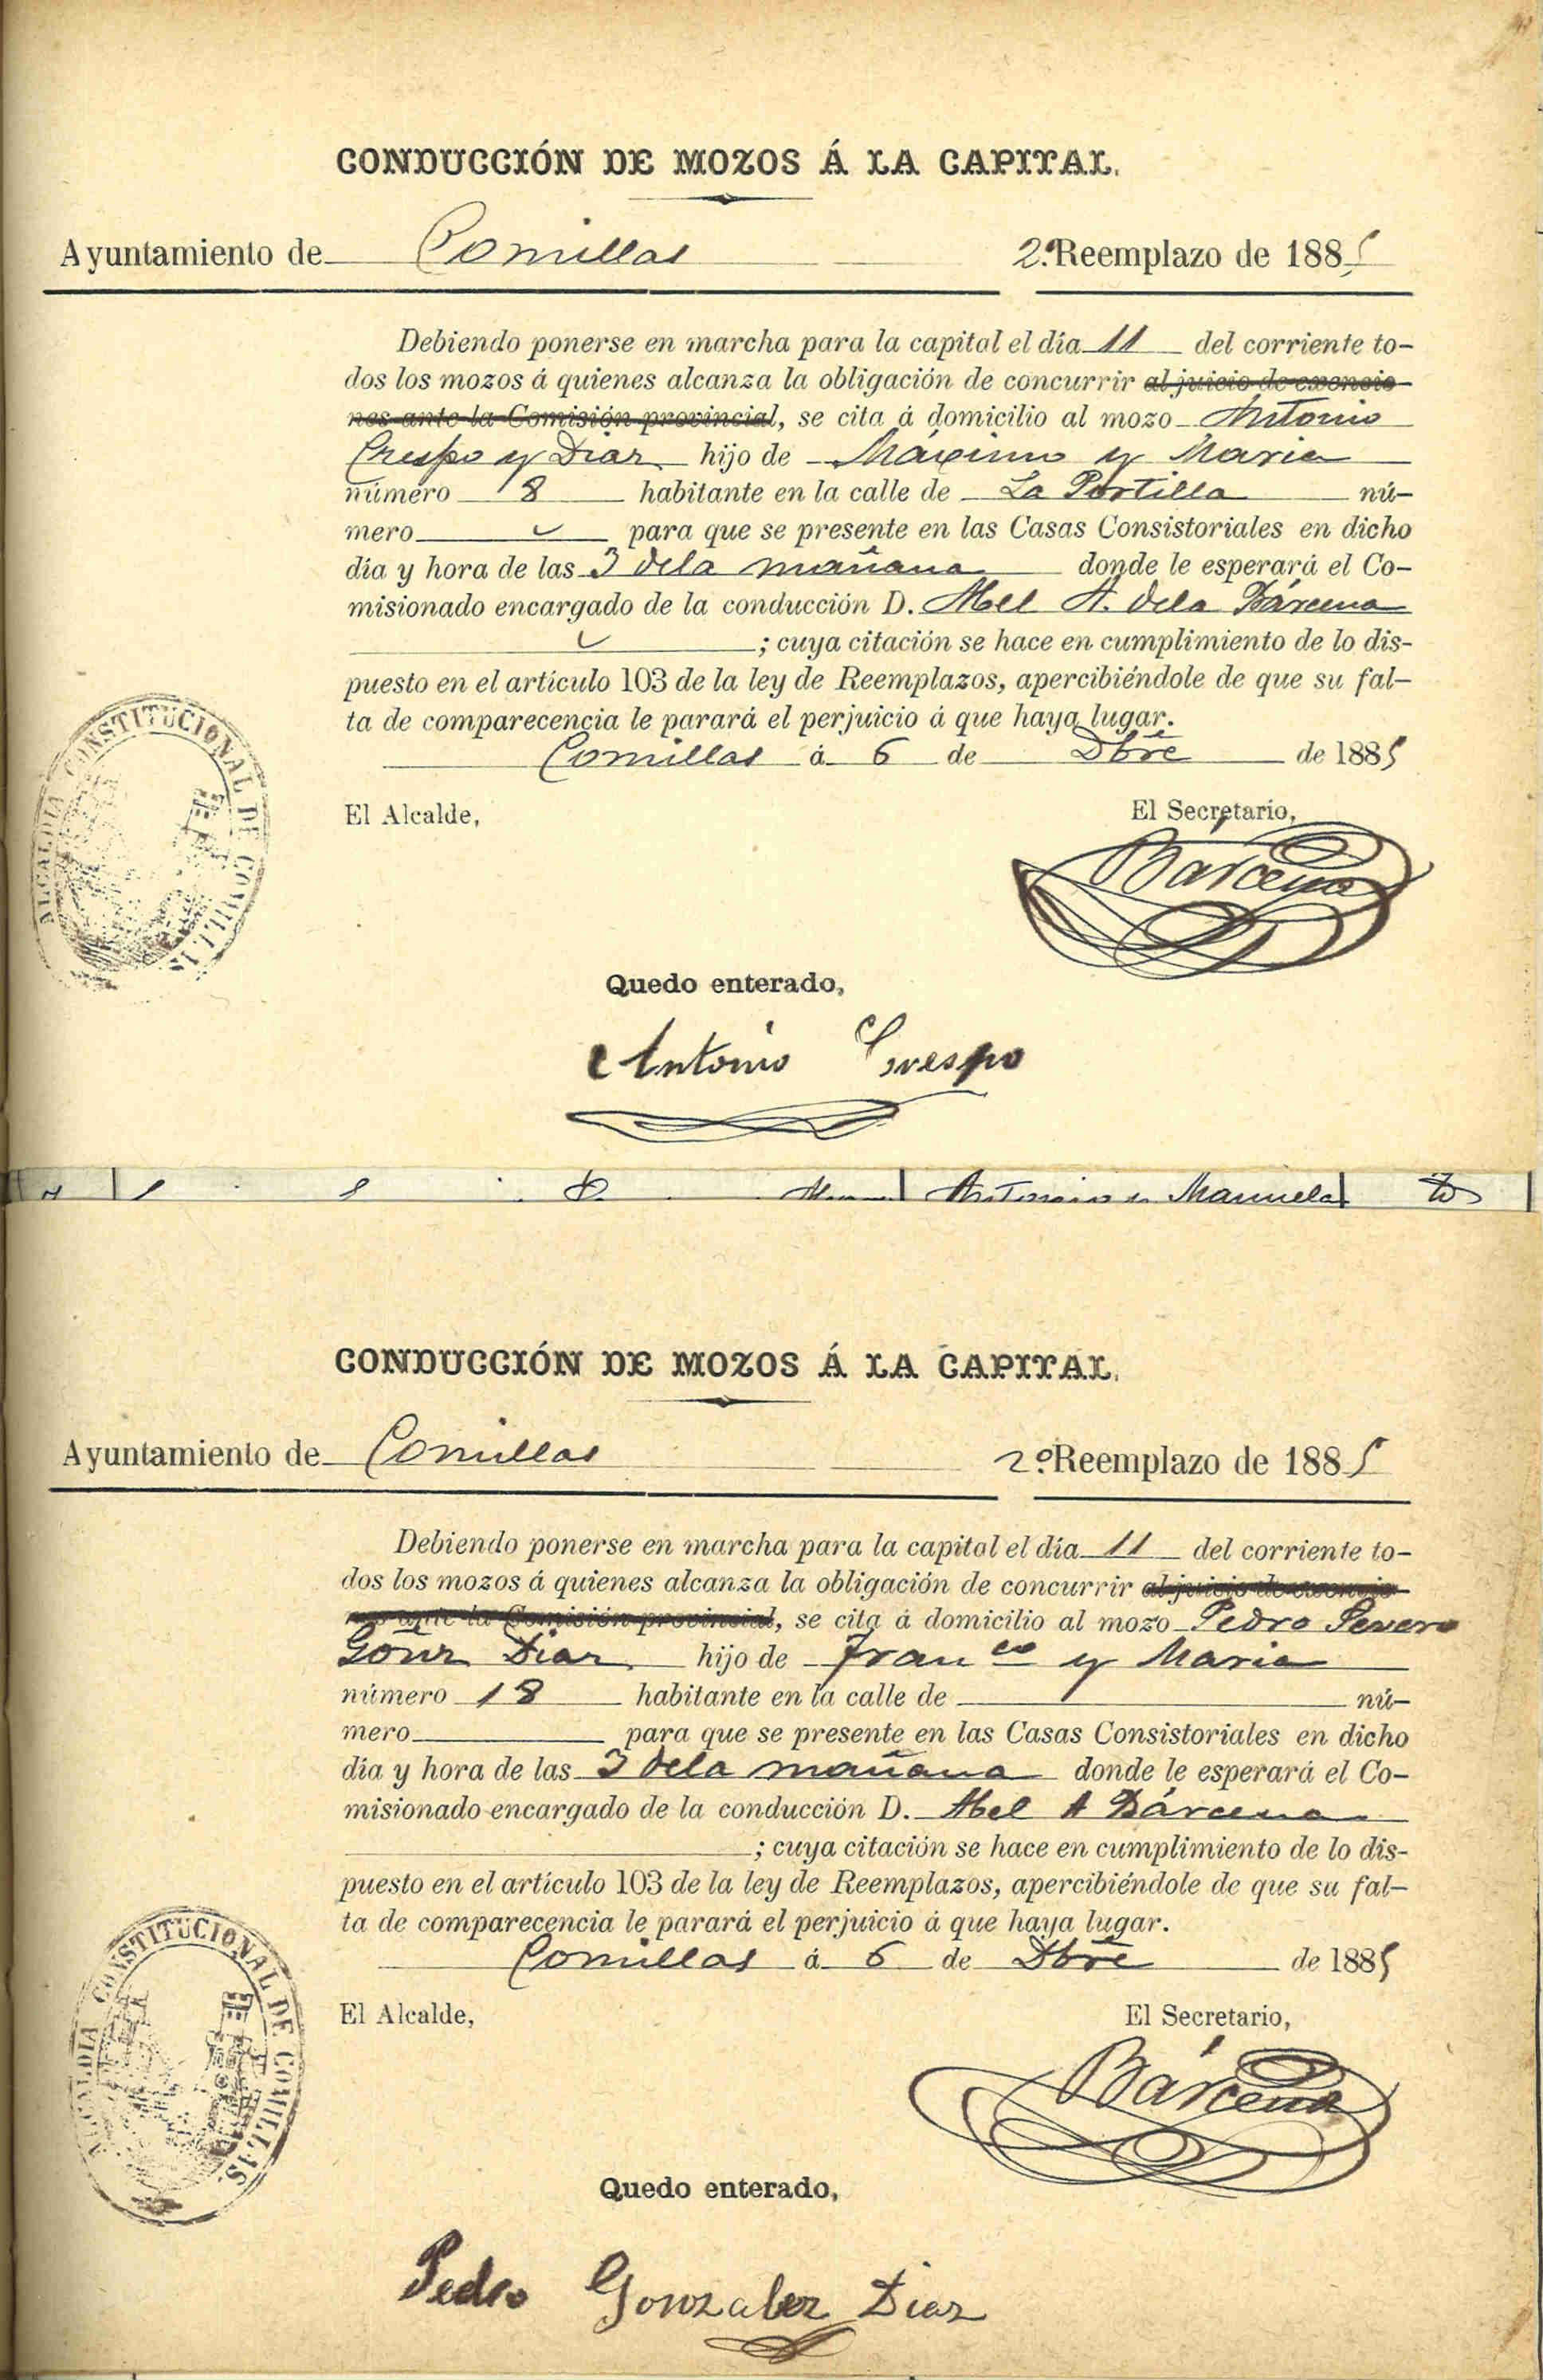 CONDUCCIÓN DE MOZOS Á LA CAPITAL.
Ayuntamiento de Comillas 2.º Reemplazo de 1885
Debiendo ponerse en marcha para la capital el día 11 del corriente to-
dos los mozos á quienes alcanza la obligación de concurrir al juicio de exencio-
nes ante la Comisión provincial, se cita á domicilio al mozo Antonio
Crespo y Diaz hijo de Máximo y Maria
número 8 habitante en la calle de La Portilla nú-
mero para que se presente en las Casas Consistoriales en dicho
día y hora de las 3 dela mañana donde le esperará el Co-
misionado encargado de la conducción D. Abel A. dela Bárcena
; cuya citación se hace en cumplimiento de lo dis-
puesto en el artículo 103 de la ley de Reemplazos, apercibiéndole de que su fal-
ta de comparecencia le parará el perjuicio á que haya lugar.
Comillas á 6 de Dbre de 1885
El Alcalde, El Secretario,
ALCALDIA CONSTITUCIONAL DE COMILLAS
Bárcena
Quedo enterado,
Antonio Crespo
Antonio y Manuela
CONDUCCIÓN DE MOZOS Á LA CAPITAL.
Ayuntamiento de Comillas 2º Reemplazo de 1885
Debiendo ponerse en marcha para la capital el día 11 del corriente to-
dos los mozos á quienes alcanza la obligación de concurrir al juicio de exencio-
nes ante la Comisión provincial, se cita á domicilio al mozo Pedro Severo
Gonz Diaz hijo de Franco y Maria
número 18 habitante en la calle de nú-
mero para que se presente en las Casas Consistoriales en dicho
día y hora de las 3 dela mañana donde le esperará el Co-
misionado encargado de la conducción D. Abel A Bárcena
; cuya citación se hace en cumplimiento de lo dis-
puesto en el artículo 103 de la ley de Reemplazos, apercibiéndole de que su fal-
ta de comparecencia le parará el perjuicio á que haya lugar.
Comillas á 6 de Dbre de 1885
El Alcalde, El Secretario,
ALCALDIA CONSTITUCIONAL DE COMILLAS
Bárcena
Quedo enterado,
Pedro Gonzalez Diaz